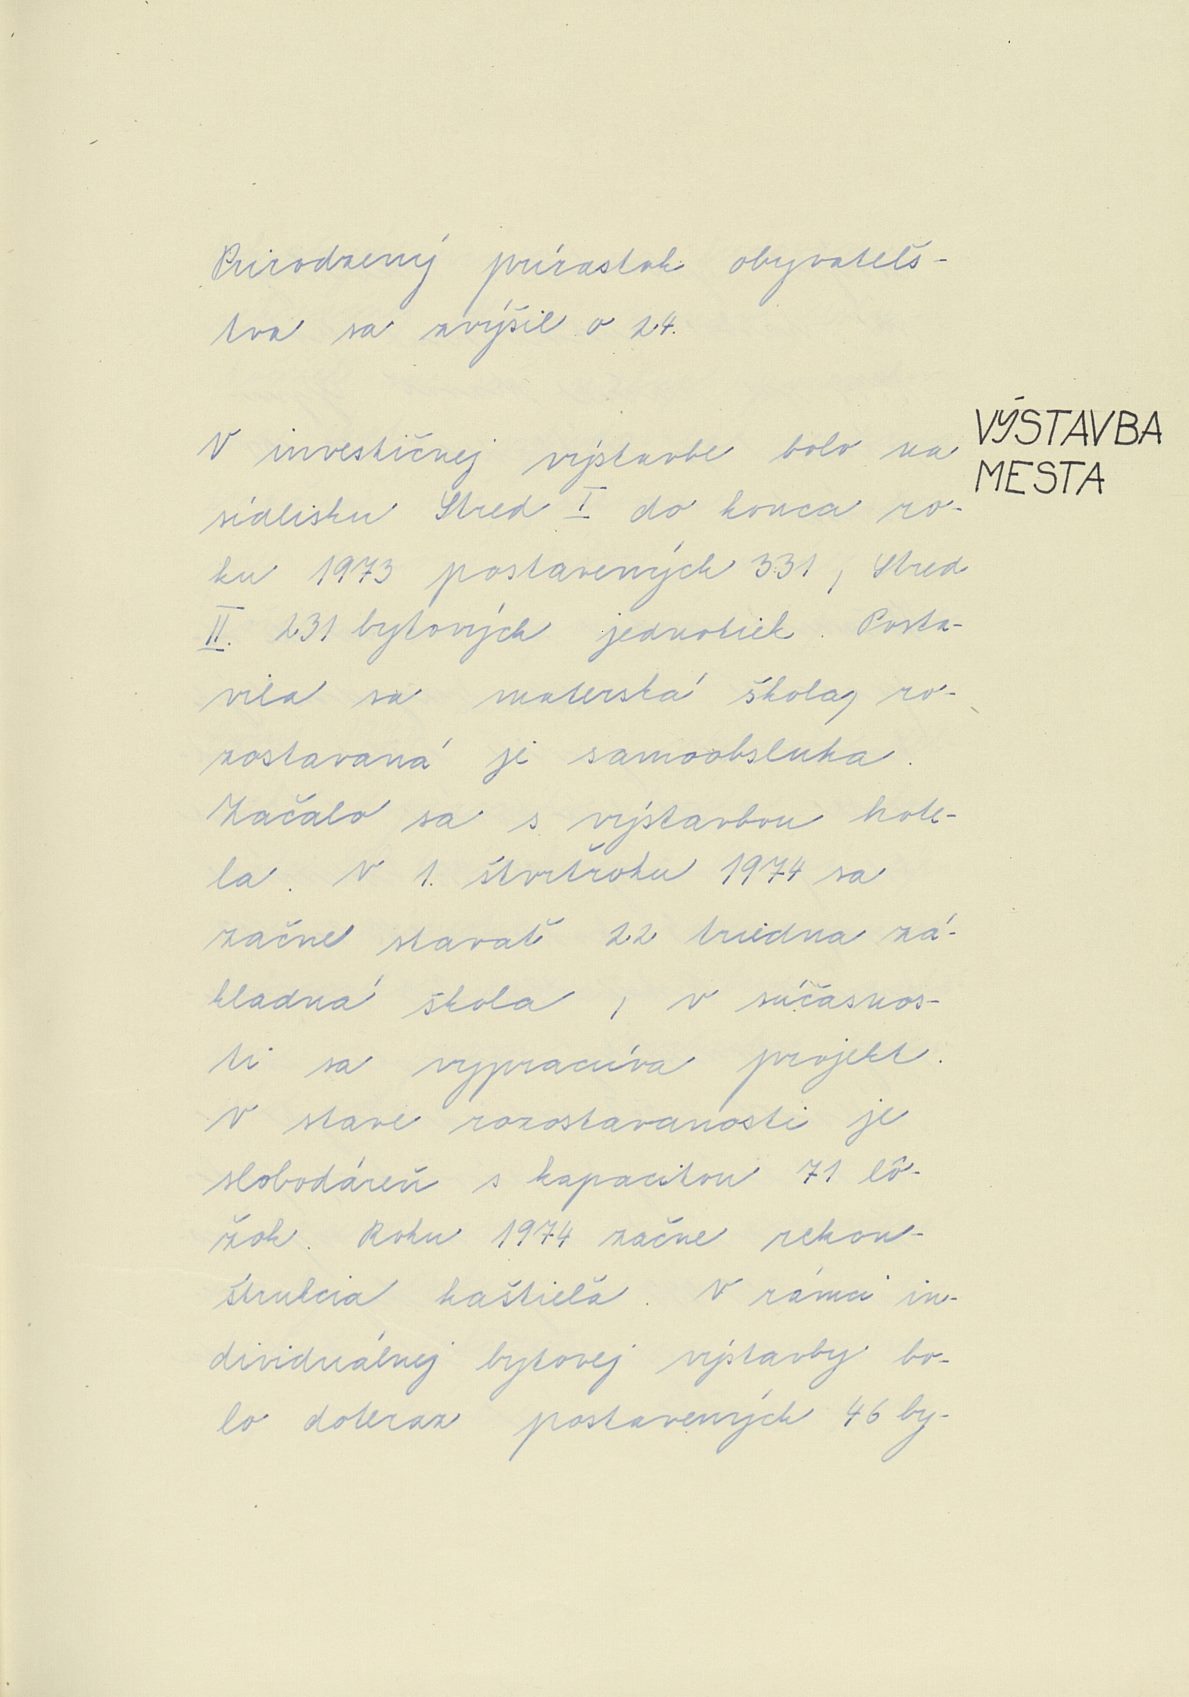 Prirodzený prírastok obyvateľs-
tva sa zvýšil o 24.
VÝSTAVBA
MESTA
V investičnej výstavbe bolo na
sídlisku Stred I do konca ro-
ku 1973 postavených 331, Stred
II. 231 bytových jednotiek. Posta-
vila sa materská škola, ro-
zostavaná je samoobsluha.
Začalo sa s výstavbou hote-
la. V 1. štvrťroku 1974 sa
začne stavať 22 triedna zá-
kladná škola, v súčasnos-
ti sa vypracúva projekt.
V stave rozostavanosti je
slobodáreň s kapacitou 71 lô-
žok. Roku 1974 začne rekon-
štrukcia kaštieľa. V rámci in-
dividuálnej bytovej výstavby bo-
lo doteraz postavených 46 by-